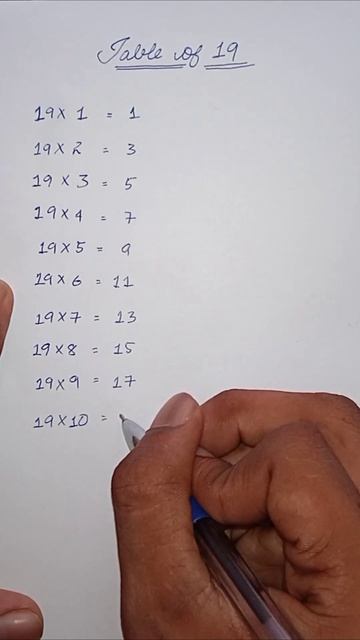 Table of 19
19 x 1 = 1
19 x 2 = 3
19 x 3 = 5
19 x 4 = 7
19 x 5 = 9
19 x 6 = 11
19 x 7 = 13
19 x 8 = 15
19 x 9 = 17
19 x 10 =